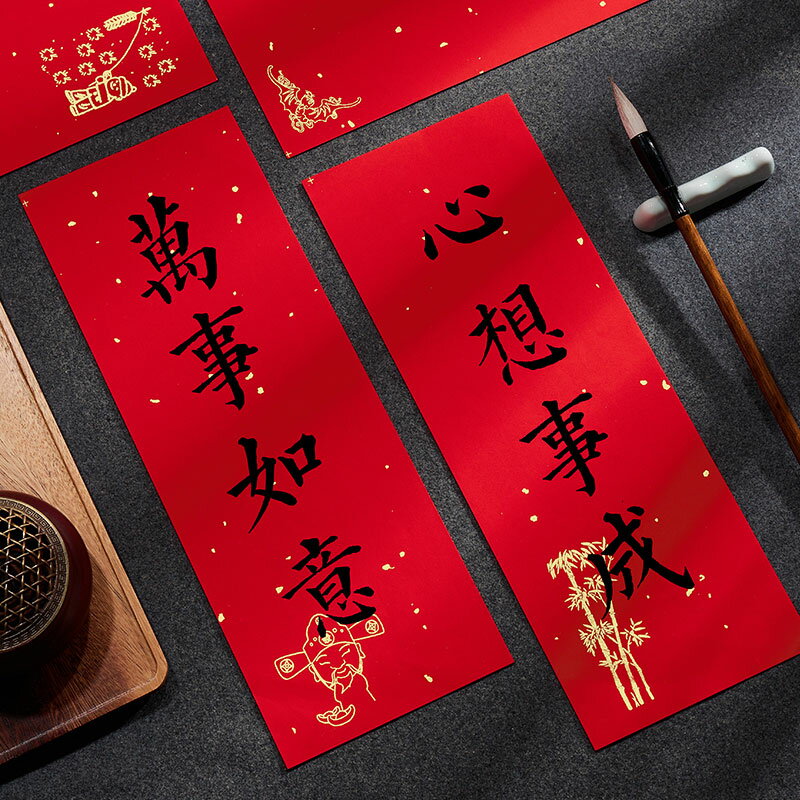 心想事成
萬事如意